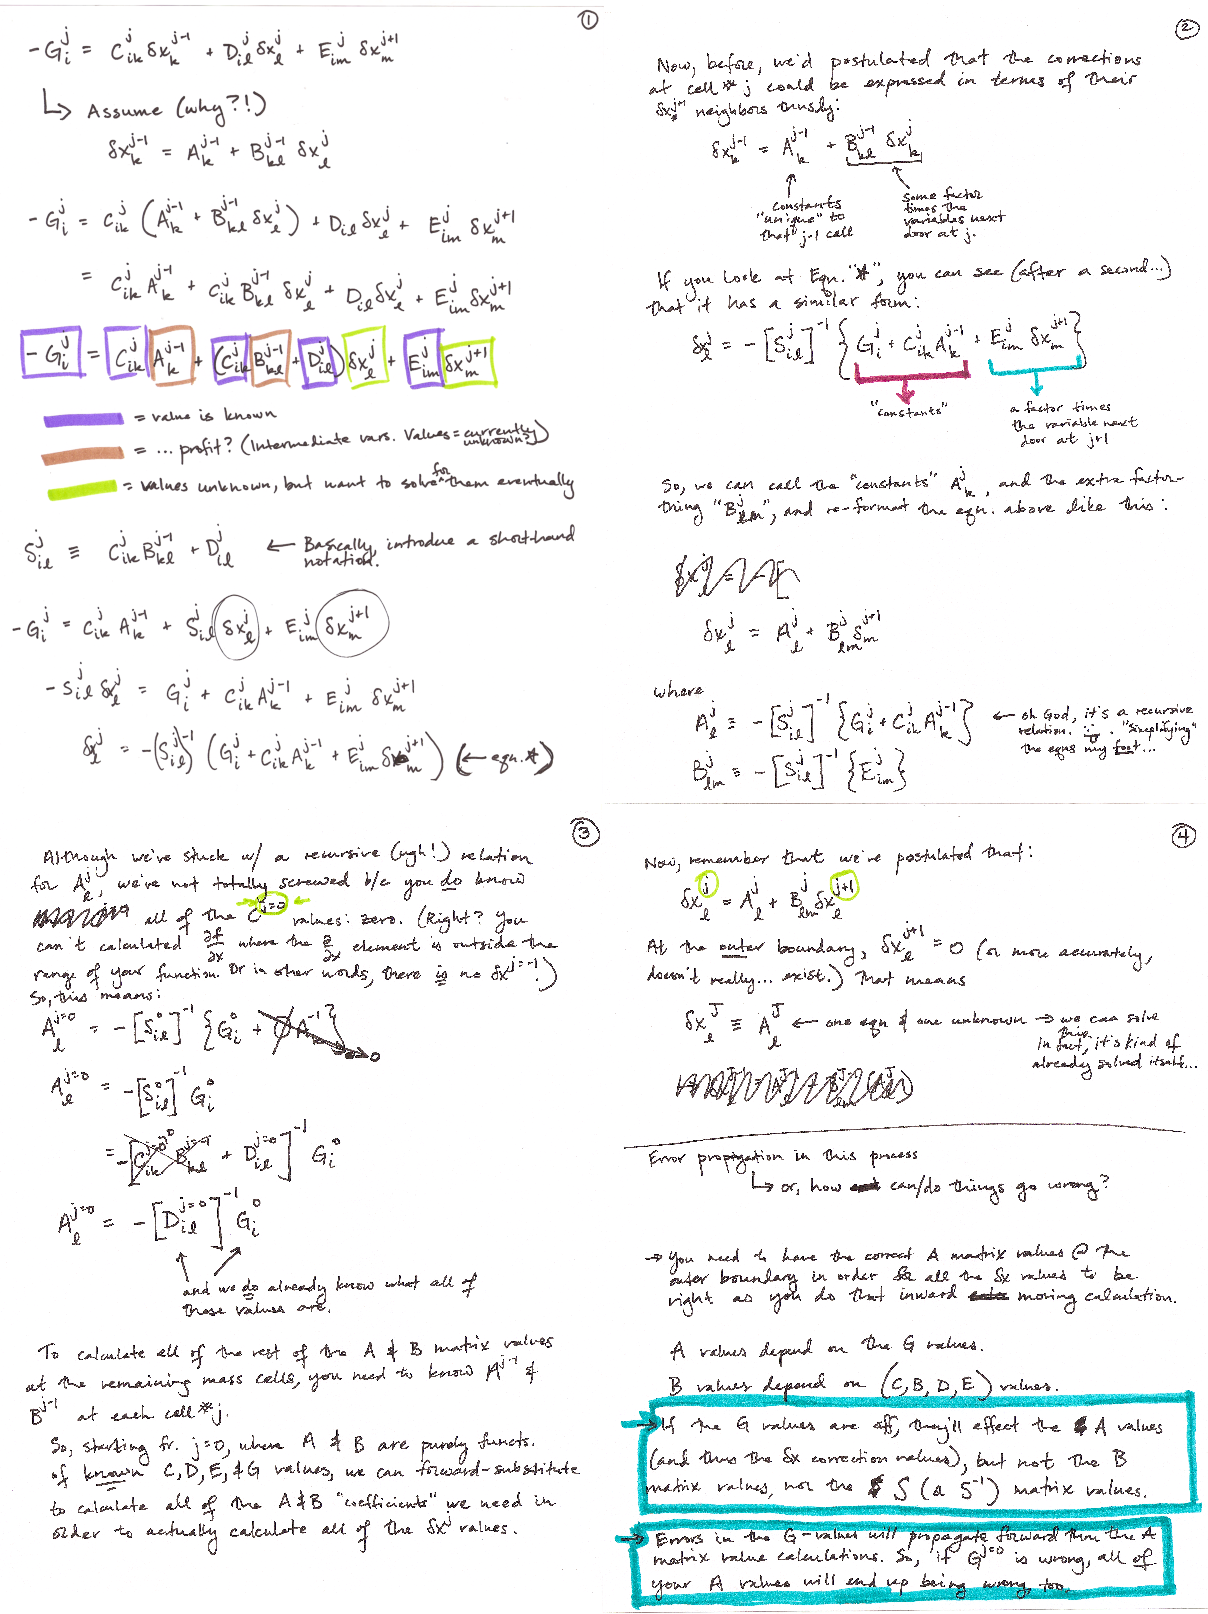 ①
-G_i^j = C_ik^j δx_k^{j-1} + D_il^j δx_l^j + E_im^j δx_m^{j+1}
↳ Assume (why?!)
δx_k^{j-1} = A_k^{j-1} + B_kl^{j-1} δx_l^j
-G_i^j = C_ik^j (A_k^{j-1} + B_kl^{j-1} δx_l^j) + D_il δx_l^j + E_im^j δx_m^{j+1}
= C_ik^j A_k^{j-1} + C_ik^j B_kl^{j-1} δx_l^j + D_il δx_l^j + E_im^j δx_m^{j+1}
-G_i^j = C_ik^j A_k^{j-1} + (C_ik^j B_kl^{j-1} + D_il^j) δx_l^j + E_im^j δx_m^{j+1}
= value is known
= ... profit? (Intermediate vars. Values = currently unknown?)
= values unknown, but want to solve for them eventually
S_il^j ≡ C_ik^j B_kl^{j-1} + D_il^j ← Basically, introduce a short-hand
notation.
-G_i^j = C_ik^j A_k^{j-1} + S_il^j δx_l^j + E_im^j δx_m^{j+1}
-S_il^j δx_l^j = G_i^j + C_ik^j A_k^{j-1} + E_im^j δx_m^{j+1}
δx_l^j = -(S_il^j)^{-1} (G_i^j + C_ik^j A_k^{j-1} + E_im^j δx_m^{j+1}) (← eqn.*)
②
Now, before, we'd postulated that the corrections
at cell # j could be expressed in terms of their
δx^{j+1} neighbors thusly:
δx_k^{j-1} = A_k^{j-1} + B_kl^{j-1} δx_k^j
constants
"unique" to
that j-1 cell
some factor
times the
variables next
door at j.
If you look at Eqn. "*", you can see (after a second...)
that it has a similar form:
δx_l^j = -[S_il^j]^{-1} {G_i^j + C_ik^j A_k^{j-1} + E_im^j δx_m^{j+1}}
"constants"
a factor times
the variable next
door at j+1
So, we can call the "constants" A_k^j, and the extra factor-
thing "B_lm^j", and re-format the eqn. above like this:
δx_l^j = A_l^j + B_lm^j δ_m^{j+1}
where
A_l^j ≡ -[S_il^j]^{-1} {G_i^j + C_ik^j A_k^{j-1}} ← oh God, it's a recursive
relation. "simplifying"
the eqns my foot...
B_lm^j ≡ -[S_il^j]^{-1} {E_im^j}
③
Although we're stuck w/ a recursive (ugh!) relation
for A_l^j, we're not totally screwed b/c you do know
all of the C^{j=0} values: zero. (Right? You
can't calculated ∂f/∂x where the ∂/∂x element is outside the
range of your function. Or in other words, there is no δx^{j=-1}.)
So, this means:
A_l^{j=0} = -[S_il^0]^{-1} {G_i^0 + 0 A^{-1}} → 0
A_l^{j=0} = -[S_il^0]^{-1} G_i^0
= -[C_ik^{j=0} B_kl^{j=-1} + D_il^{j=0}]^{-1} G_i^0
A_l^{j=0} = -[D_il^{j=0}]^{-1} G_i^0
and we do already know what all of
those values are.
To calculate all of the rest of the A & B matrix values
at the remaining mass cells, you need to know A^{j-1} &
B^{j-1} at each cell # j.
So, starting fr. j=0, where A & B are purely functs.
of known C, D, E, & G values, we can forward-substitute
to calculate all of the A & B "coefficients" we need in
order to actually calculate all of the δx^j values.
④
Now, remember that we've postulated that:
δx_l^j = A_l^j + B_lm^j δx_l^{j+1}
At the outer boundary, δx_l^{j+1} = 0 (or more accurately,
doesn't really... exist.) That means
δx_l^J ≡ A_l^J ← one eqn & one unknown → we can solve
this.
In fact, it's kind of
already solved itself...
Error propagation in this process
↳ or, how can/do things go wrong?
→ You need to have the correct A matrix values @ the
outer boundary in order for all the δx values to be
right as you do that inward moving calculation.
A values depend on the G values.
B values depend on (C, B, D, E) values.
→ If the G values are off, they'll effect the A values
(and thus the δx correction values), but not the B
matrix values, nor the S (a S^{-1}) matrix values.
→ Errors in the G-values will propagate forward thru the A
matrix value calculations. So, if G^{j=0} is wrong, all of
your A values will end up being wrong, too.